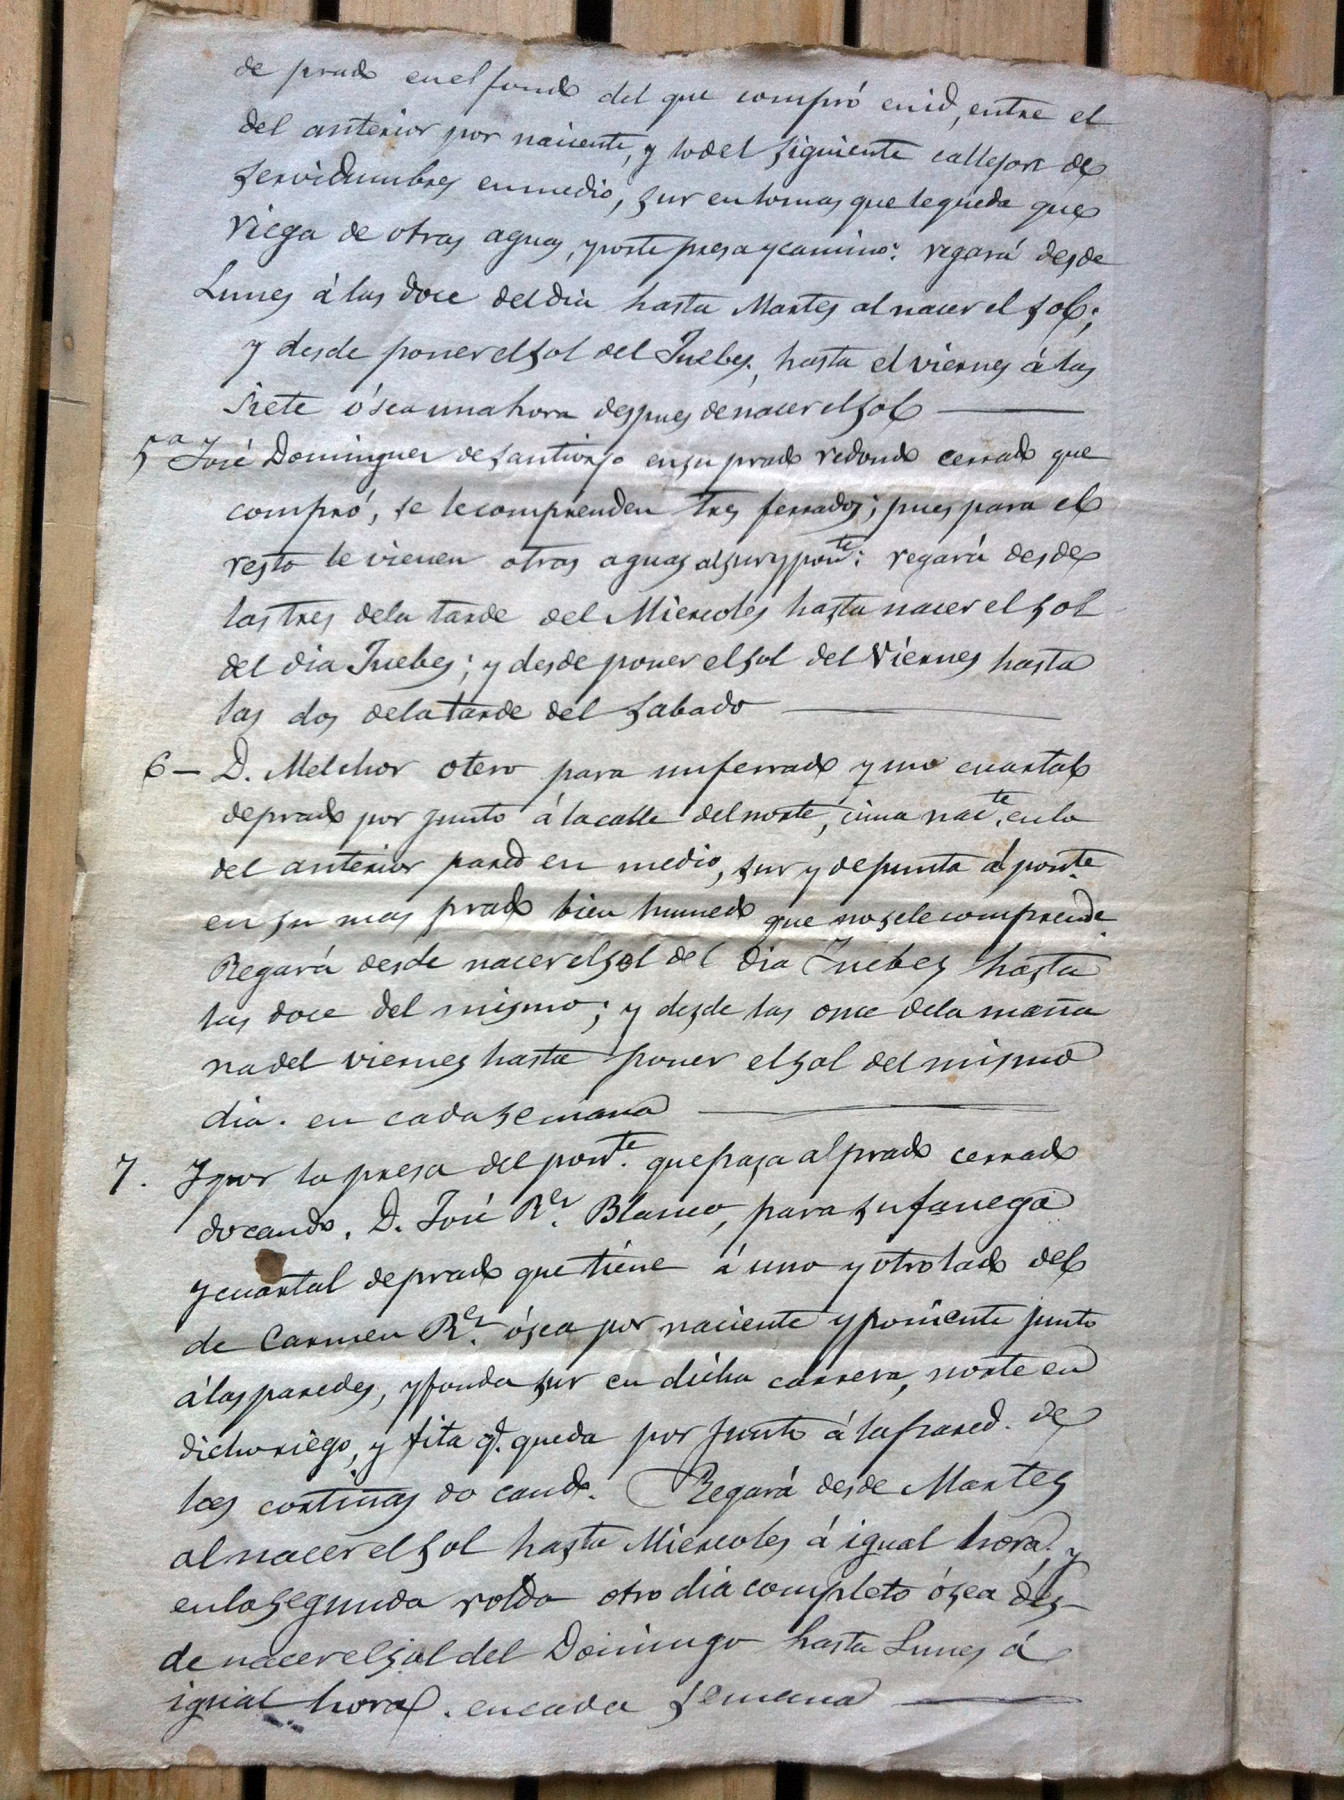 de prado en el fondo del que compró en id, entre el
del anterior por naciente, y lo del siguiente callejon de
servidumbres en medio, sur en tomas que le queda que
riega de otras aguas, y norte presa y camino: regará desde
Lunes á las doce del dia hasta Martes al nacer el sol;
y desde poner el sol del Juebes, hasta el viernes á las
siete ó sea una hora despues de nacer el sol
5ª José Dominguez de Santiago en su prado redondo cerrado que
compró, se le comprenden tres ferrados; pues para el
resto le vienen otras aguas al sur y ponte: regará desde
las tres de la tarde del Miercoles hasta nacer el sol
del dia Juebes; y desde poner el sol del Viernes hasta
las dos de la tarde del Sabado
6 – D. Melchor otero para un ferrado y un cuartal
de prado por junto á la calle del norte, cima nacte. en lo
del anterior pared en medio, sur y de punta al ponte.
en su mas prado bien humedo que no se le comprende.
Regará desde nacer el sol del dia Juebes hasta
las doce del mismo; y desde las once de la maña
na del viernes hasta poner el sol del mismo
dia. en cada semana
7. Y por la presa del ponte. que pasa al prado cerrado
do cando. D. José Rez. Blanco, para su fanega
y cuartal de prado que tiene á uno y otro lado del
de Carmen Rez. ó sea por naciente y poniente junto
á las paredes, y fonda sur en dicha carrera, norte en
dicho riego, y fita q. queda por junto á la pared. de
las cortiñas do cando. Regará desde Martes
al nacer el sol hasta Miercoles á igual hora, y
en la segunda rolda otro dia completo ó sea des-
de nacer el sol del Domingo hasta Lunes á
igual hora. en cada semana